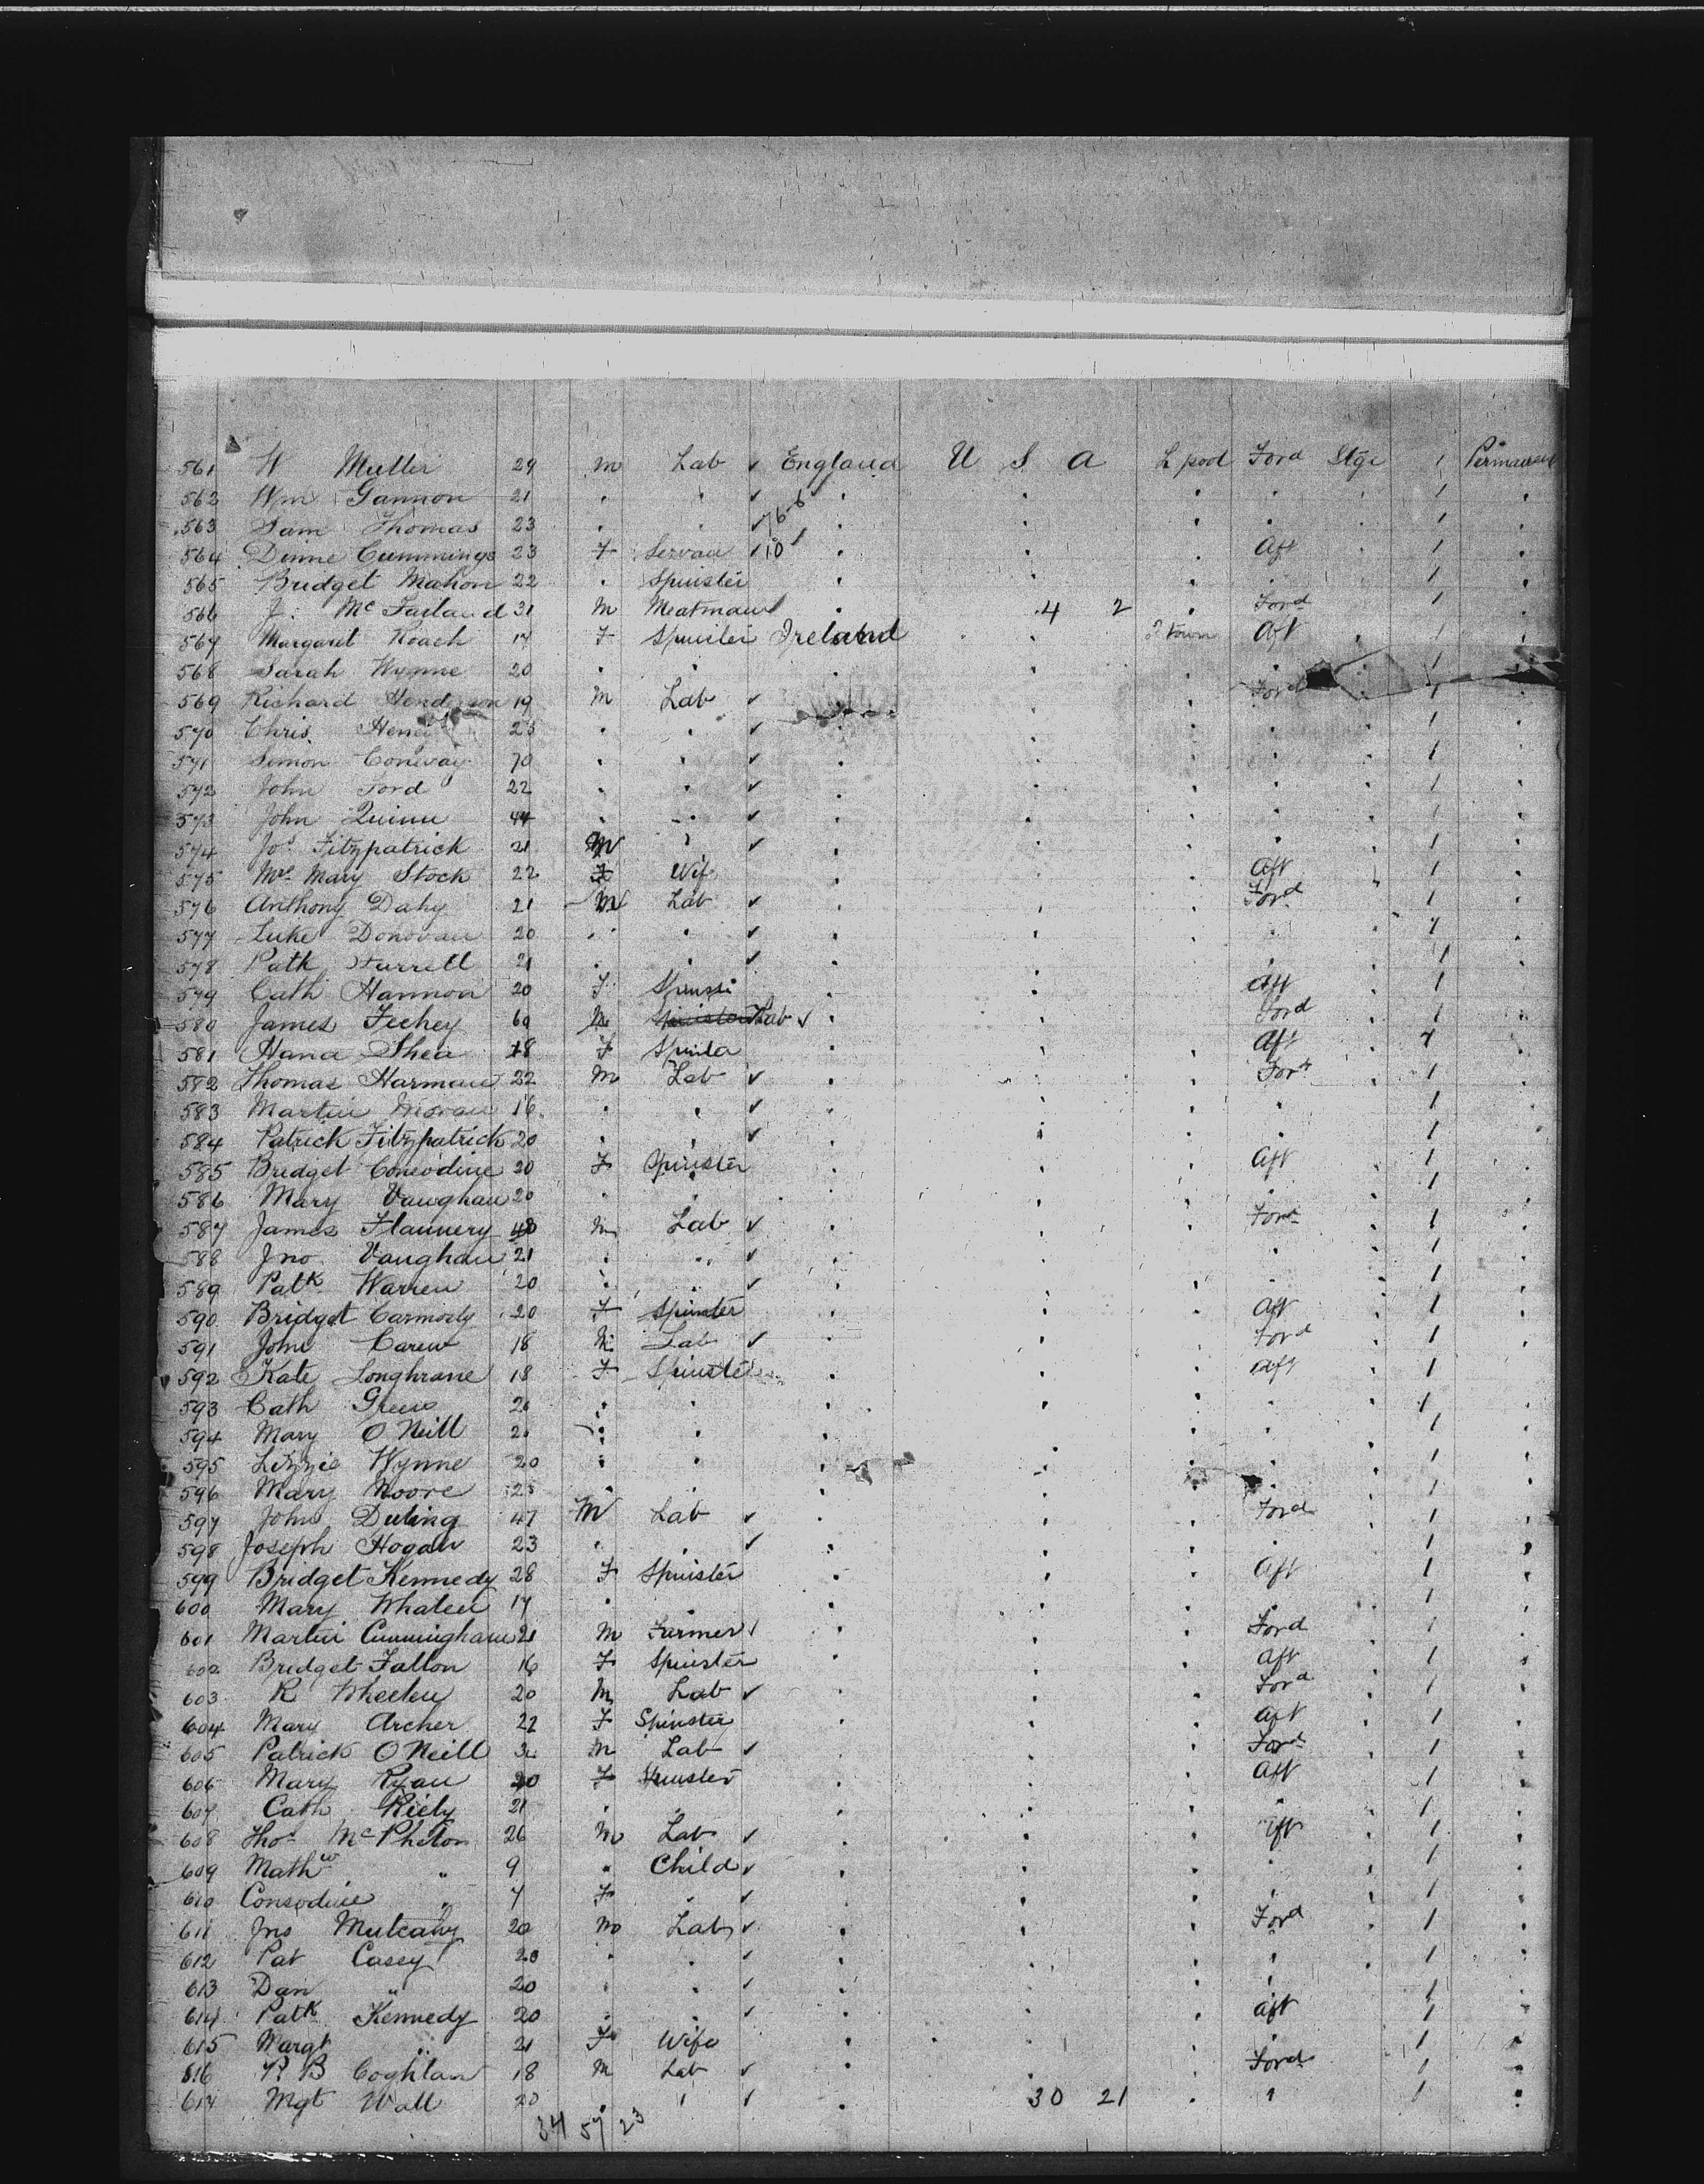 561 W Muller 29 m Lab ✓ England U S A L pool Ford Stge 1 Permanent
562 Wm Gannon 21 . . ✓ . . . . . 1 .
563 Sam Thomas 23 . . ✓ 76-6 . . . . . 1 .
564 Cummings 23 F Servan ✓ 10 . . . Aft . 1 .
565 Bridget Mahon 22 . Spinster . . . . . 1 .
566 J. Mc Farland 31 M Meatman . 4 2 . Ford 1
567 Margaret Roach 17 F Spinster Ireland . town Aft . 1 .
568 Sarah Wynne 20 . . . . . . 1
569 Richard Henderson 19 m Lab ✓ . . Ford 1 .
570 Chris 23 . . ✓ . . . 1 .
571 Simon Conway 70 . . ✓ . . . . . 1 .
572 John Ford 22 . . ✓ . . . . . 1 .
573 John Quinn 44 . . ✓ . . . . . 1 .
574 Jos Fitzpatrick 21 M . ✓ . . . . . 1 .
575 Mrs Mary Stock 22 F Wif . . . Aft " 1 .
576 Anthony Dahy 21 M Lab ✓ . . . Ford . 1 .
577 Luke Donovan 20 . . ✓ . . . . . 1 .
578 Patk Farrell 21 . . ✓ . . . . . 1 .
579 Cath Hannon 20 F . . . Aft . 1 .
580 James Feehey 60 M Lab ✓ . . . Ford . 1 .
581 Hana Shea 18 F . . . Aft . 1 .
582 Thomas Harman 22 m Lab ✓ . . . Ford . 1 .
583 Martin Moran 16 . . ✓ . . . . . 1 .
584 Patrick Fitzpatrick 20 . . ✓ . . . . . 1 .
585 Bridget Consodine 20 F Spinster . . . Aft . 1 .
586 Mary Vaughan 20 . . . . . . . 1 .
587 James Flannery 40 m Lab ✓ . . . Ford . 1 .
588 Jno Vaughan 21 . . ✓ . . . . . 1 .
589 Patk Warren 20 . . ✓ . . . . . 1 .
590 Bridget Carmody 20 F Spinster . . . Aft . 1 .
591 John Carew 18 M Lab ✓ . . . Ford . 1 .
592 Kate Loughrane 18 F Spinster . . . Aft . 1
593 Cath . . . . . . . 1 .
594 Mary O Neill . . . . . . . 1 .
595 Lizzie Wynne 20 . . . . . . . 1 .
596 Mary Moore 25 . . . . . . 1 .
597 John Duling 47 M Lab ✓ . . . Ford . 1 .
598 Joseph Hogan 23 . . ✓ . . . . . 1 .
599 Bridget Kennedy 28 F Spinster . . . Aft . 1 .
600 Mary Whalen 17 . . . . . . . 1 .
601 Martin Cunningham 21 m Farmer ✓ . . . Ford . 1 .
602 Bridget Fallon 16 F Spinster . . . Aft . 1 .
603 R Wheeley 20 M Lab ✓ . . . Ford . 1 .
604 Mary Archer 22 F Spinster . . . Aft . 1 .
605 Patrick O Neill m Lab ✓ . . . Ford . 1 .
606 Mary Ryan 20 F Spinster . . . Aft . 1 .
607 Cath Riely 21 . . . . . . 1 .
608 Thos McPheton 26 M Lab ✓ . . . Aft . 1 .
609 Mathw " 9 . Child ✓ . . . . . 1 .
610 Consodine " 7 F . ✓ . . . . . 1 .
611 Jno Mulcahy 20 m Lab ✓ . . . Ford . 1 .
612 Pat Casey 20 . . ✓ . . . . . 1 .
613 Dan " 20 . . ✓ . . . . . 1 .
614 Patk Kennedy 20 . . ✓ . . . Aft . 1 .
615 Margt " 21 F Wife . . . . . 1 .
616 B Coghlan 18 M Lab ✓ . . . Ford . 1 .
617 Mgt Wall 20 . ✓ . 30 21 . . 1 .
34 57 23